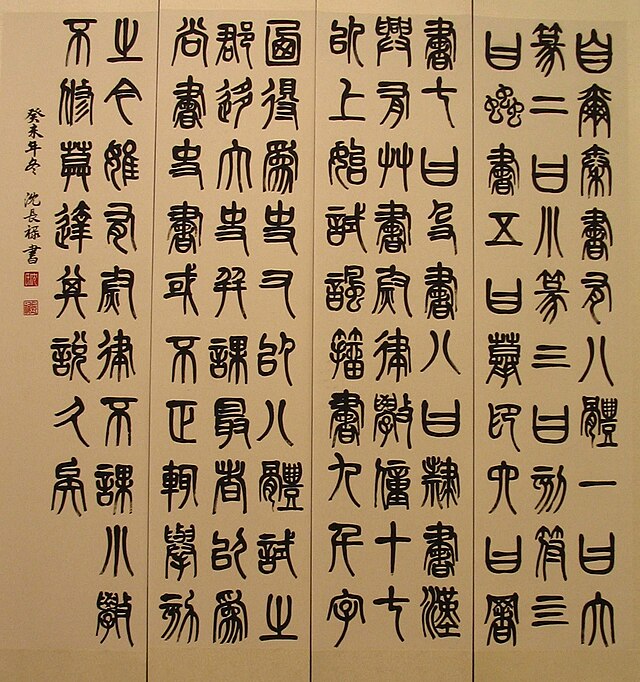 自爾秦書有八體一曰大
篆二曰小篆三曰刻符亖
曰蟲書五曰摹印六曰署
書七曰殳書八曰隸書漢
興有艸書尉律學僮十七
以上始試諷籀書九千字
乃得爲吏又以八體試之
郡移大史并課最者以爲
尚書史書或不正輒舉劾
之今雖有尉律不課小學
不修莫達其說久矣
癸未年冬 沈長祿書